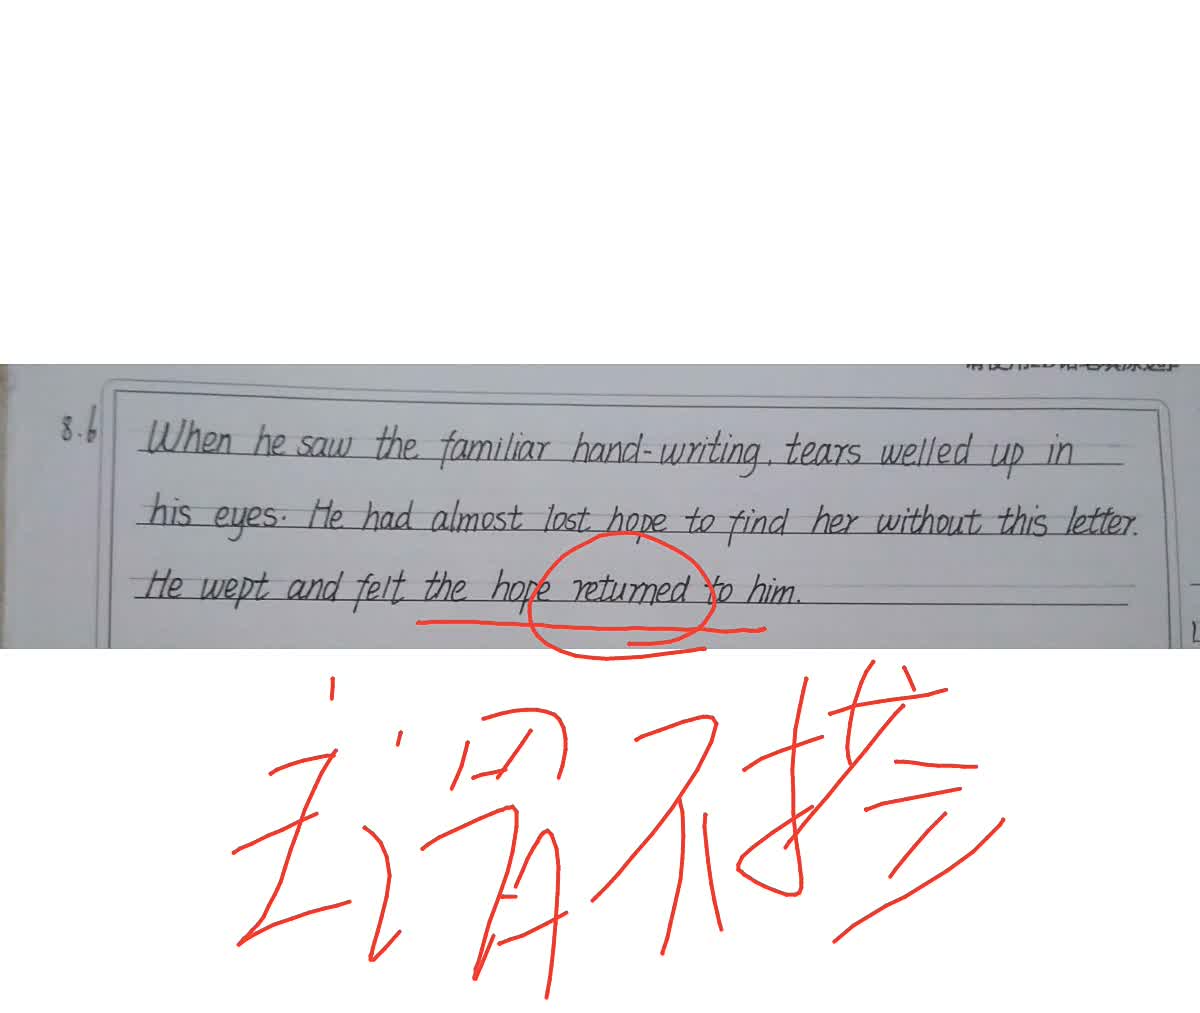 8.6
When he saw the familiar hand-writing, tears welled up in
his eyes. He had almost lost hope to find her without this letter.
He wept and felt the hope returned to him.
主谓不搭